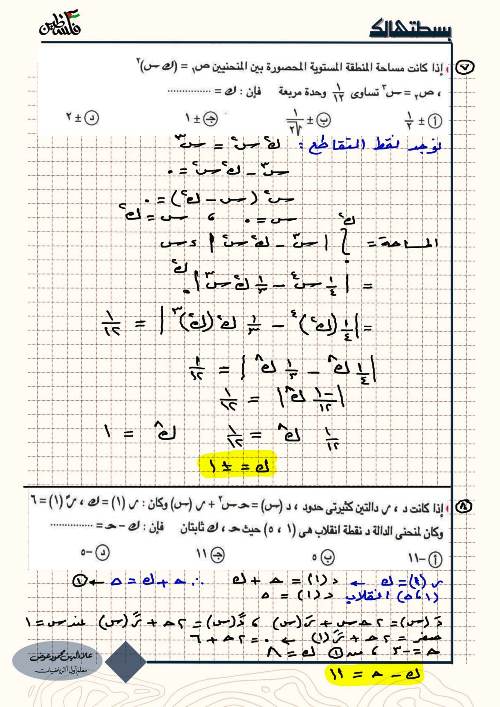 فلسطين
بسطتهالك
٧ إذا كانت مساحة المنطقة المستوية المحصورة بين المنحنيين ص₁ = (ك س)²
، ص₂ = س³ تساوى ١/١٢ وحدة مربعة فإن : ك = ...............
أ ± ١/٢ ب ± ١/√٢ ج ± ١ د ± ٢
نوجد نقط التقاطع : ك² س² = س³
س³ - ك² س² = ٠
س² (س - ك²) = ٠
س = ٠ ، س = ك²
المساحة = ∫ من ٠ إلى ك² | س³ - ك² س² | ءس
= | ١/٤ س⁴ - ١/٣ ك² س³ | من ٠ إلى ك²
= | ١/٤ (ك²)⁴ - ١/٣ ك² (ك²)³ | = ١/١٢
| ١/٤ ك⁸ - ١/٣ ك⁸ | = ١/١٢
| -١/١٢ ك⁸ | = ١/١٢
١/١٢ ك⁸ = ١/١٢ ك⁸ = ١
ك = ± ١
٨ إذا كانت د ، ر دالتين كثيرتى حدود ، د (س) = حـ س² + ر (س) وكان : ر (١) = ك ، ر″ (١) = ٦
وكان لمنحنى الدالة د نقطة انقلاب هى (١ ، ٥) حيث حـ ، ك ثابتان فإن : ك - حـ = ...............
أ -١١ ب ٥ ج ١١ د -٥
ر (١) = ك ← د (١) = حـ + ك ∴ حـ + ك = ٥ ← ①
(١ ، ٥) انقلاب د (١) = ٥
د′ (س) = ٢ حـ س + ر′ (س) ، د″ (س) = ٢ حـ + ر″ (س) عند س = ١
صفر = ٢ حـ + ر″ (١) ← ٠ = ٢ حـ + ٦
حـ = -٣ ، من ① ك = ٨
ك - حـ = ١١
علاء الدين محمود عوض
معلم أول أ الرياضيات